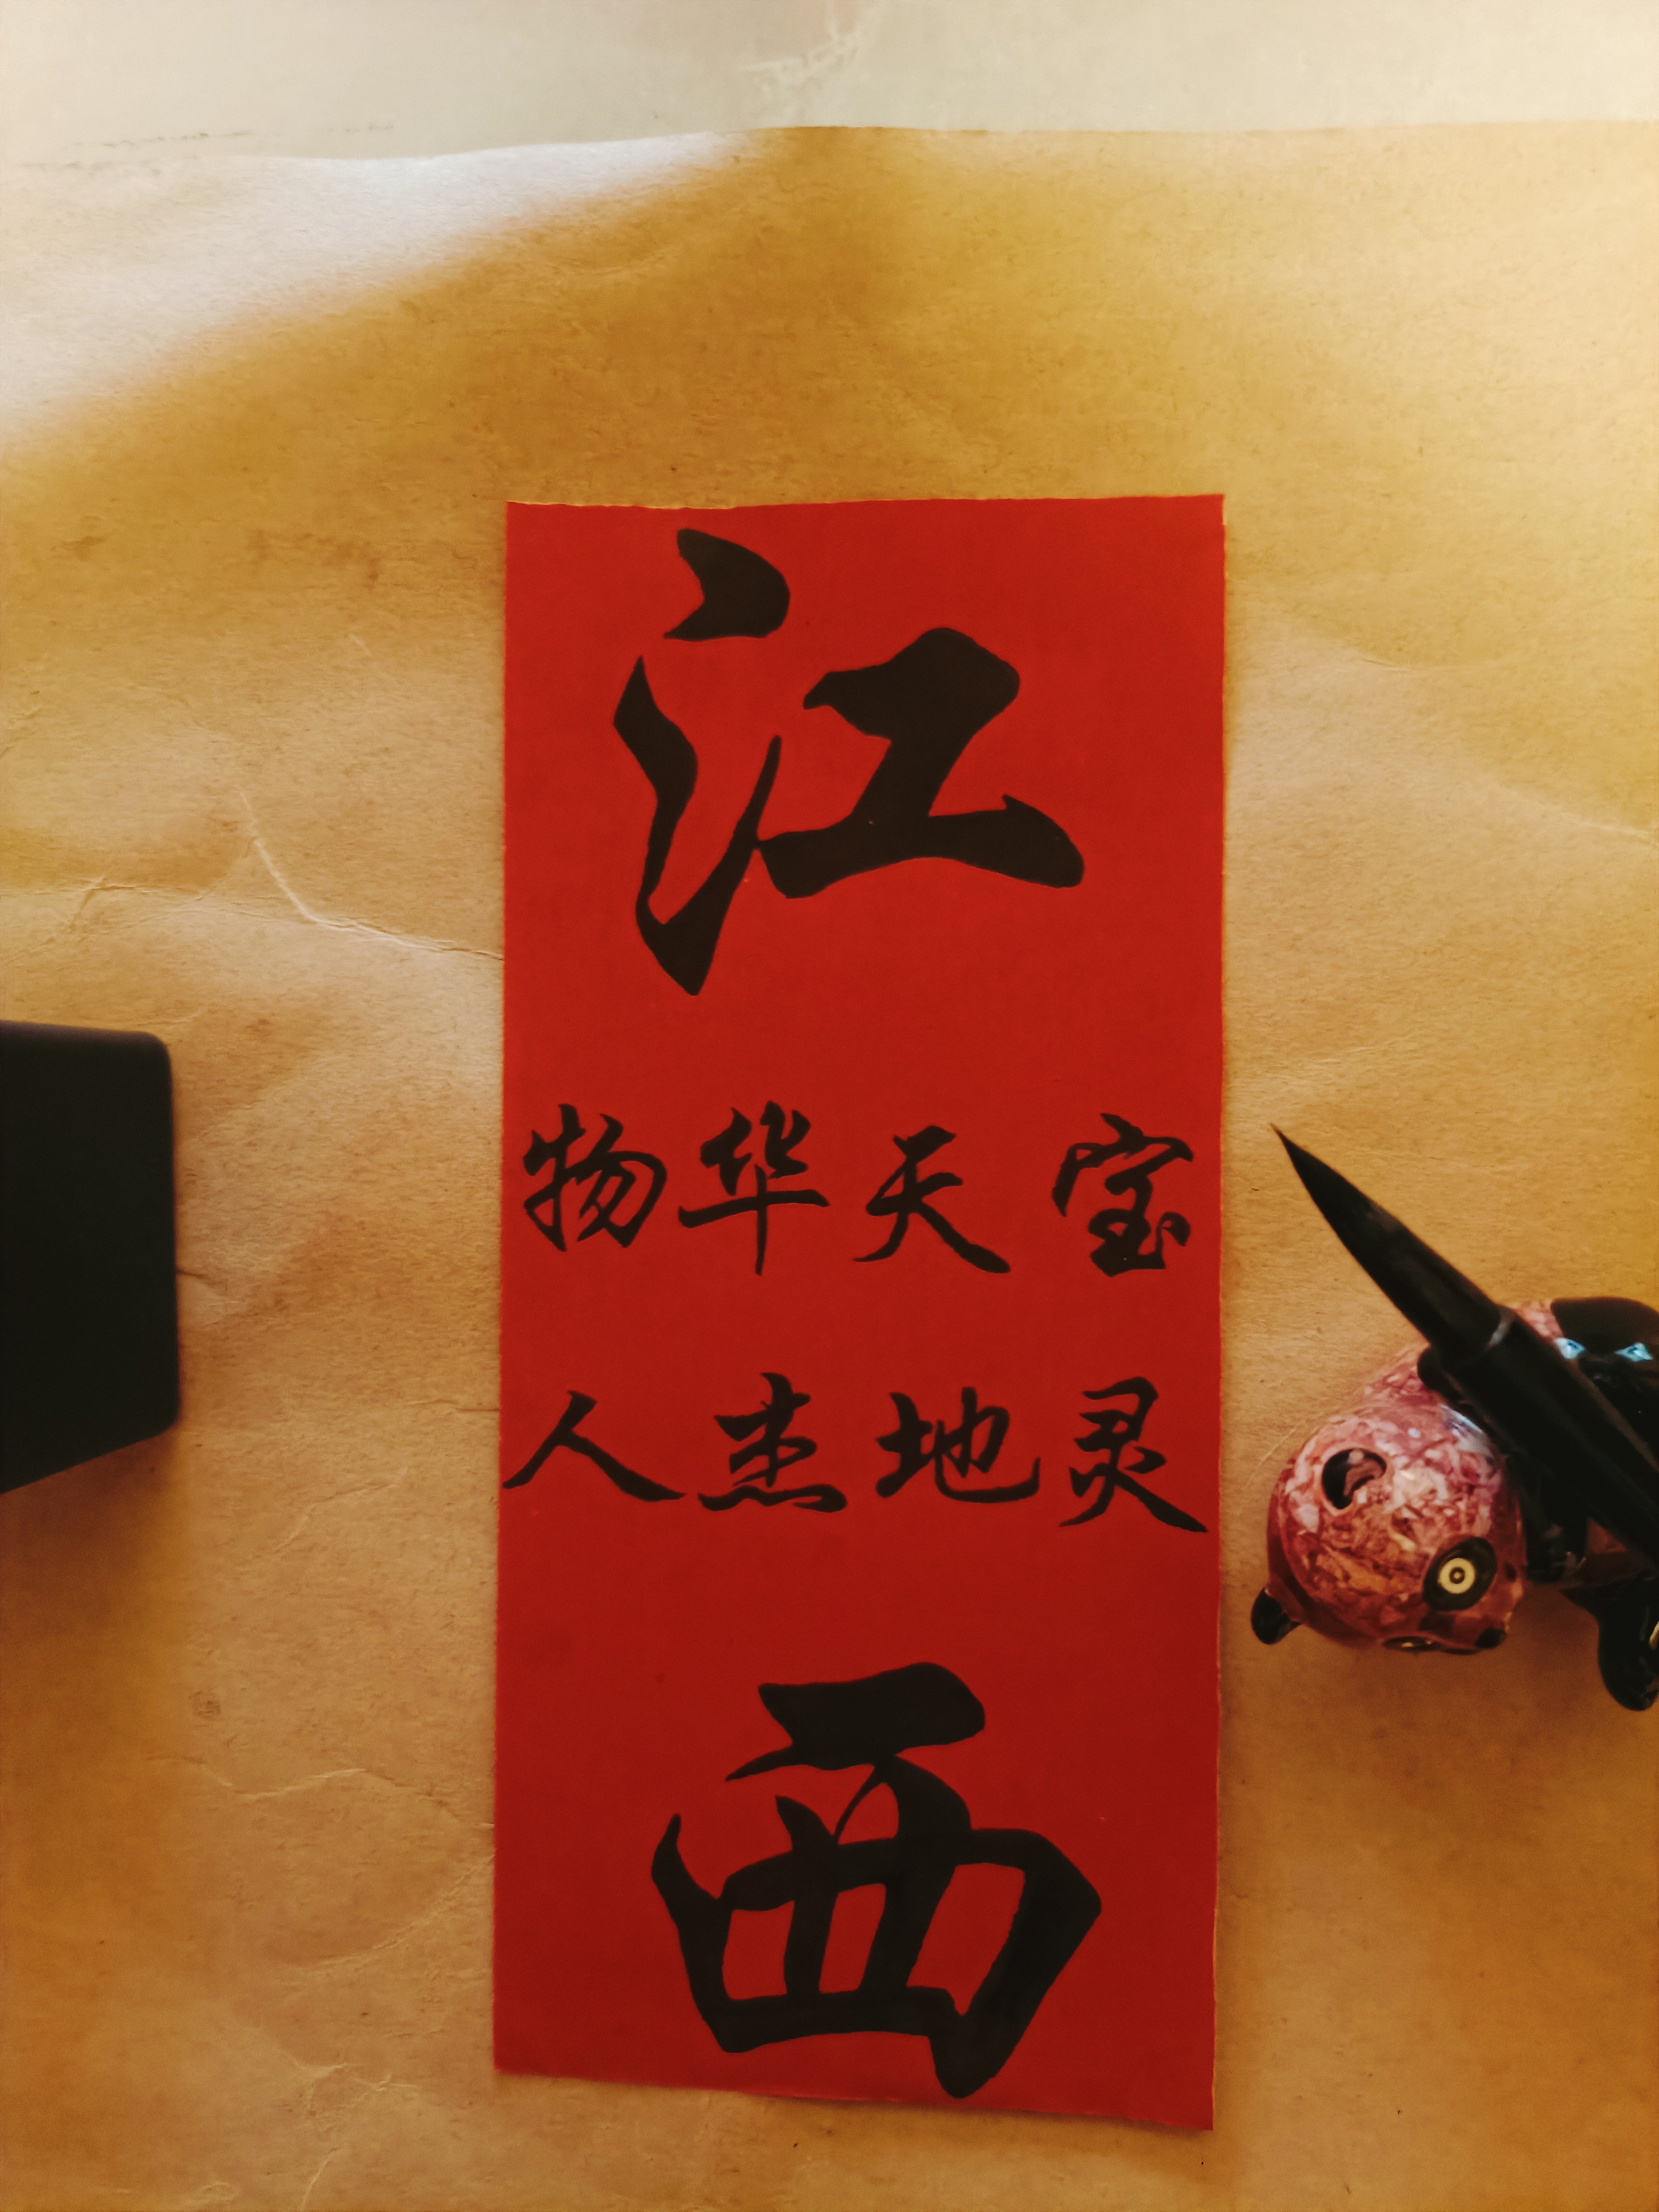 江
物华天宝
人杰地灵
西